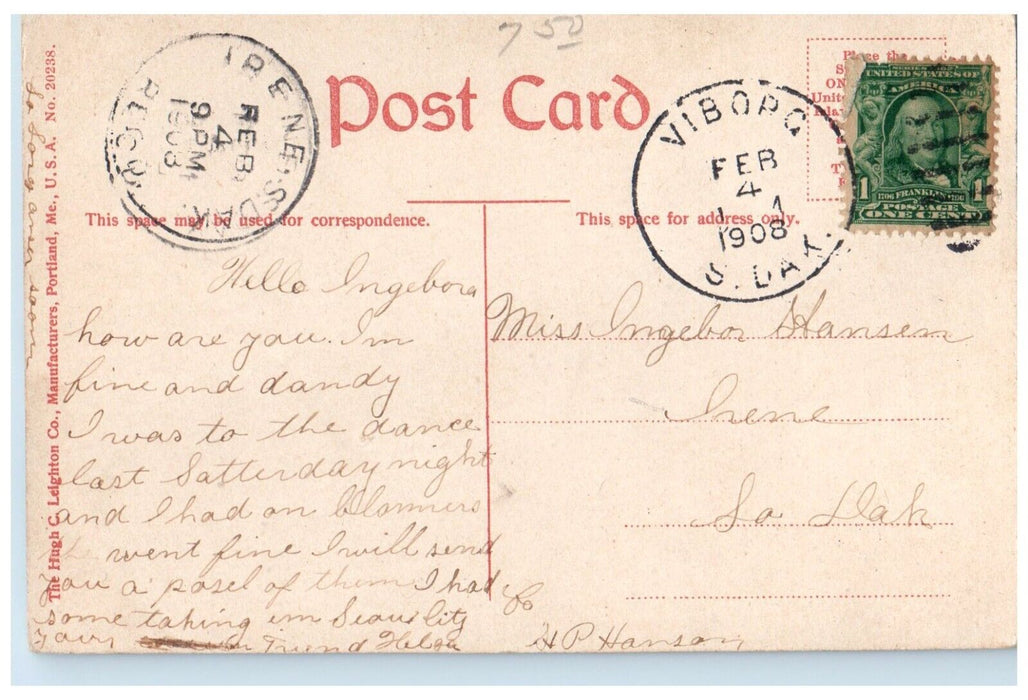 7 50
Post Card
IRENE S. DAK.
FEB
4
9 PM
1908
REC'D
VIBORG
FEB
4
1908
S. DAK.
Place the
UNITED STATES OF
AMERICA
1706 FRANKLIN 1790
POSTAGE
1 ONE CENT 1
This space may be used for correspondence.
This space for address only.
The Hugh C. Leighton Co., Manufacturers, Portland, Me., U. S. A. No. 20238.
So Long answer soon
Hello Ingebora
how are you. Im
fine and dandy
I was to the dance
last Satterday night
and I had on blomiers
went fine I will send
you a posel of them I had
some taking in Sioux City
Your Friend Helga
Miss Ingebor Hansen
Irene
So Dak
C/o
H P Hanson